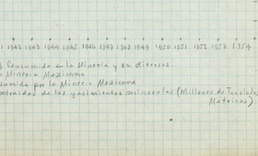 1 1942 1943 1944 1945 1946 1947 1948 1949 1950 1951 1952 1953 1954
Consumida en la Minería y en diversos
Minería Mexicana
por la Minería Mexicana
de los yacimientos minerales (Millones de Toneladas
Métricas)